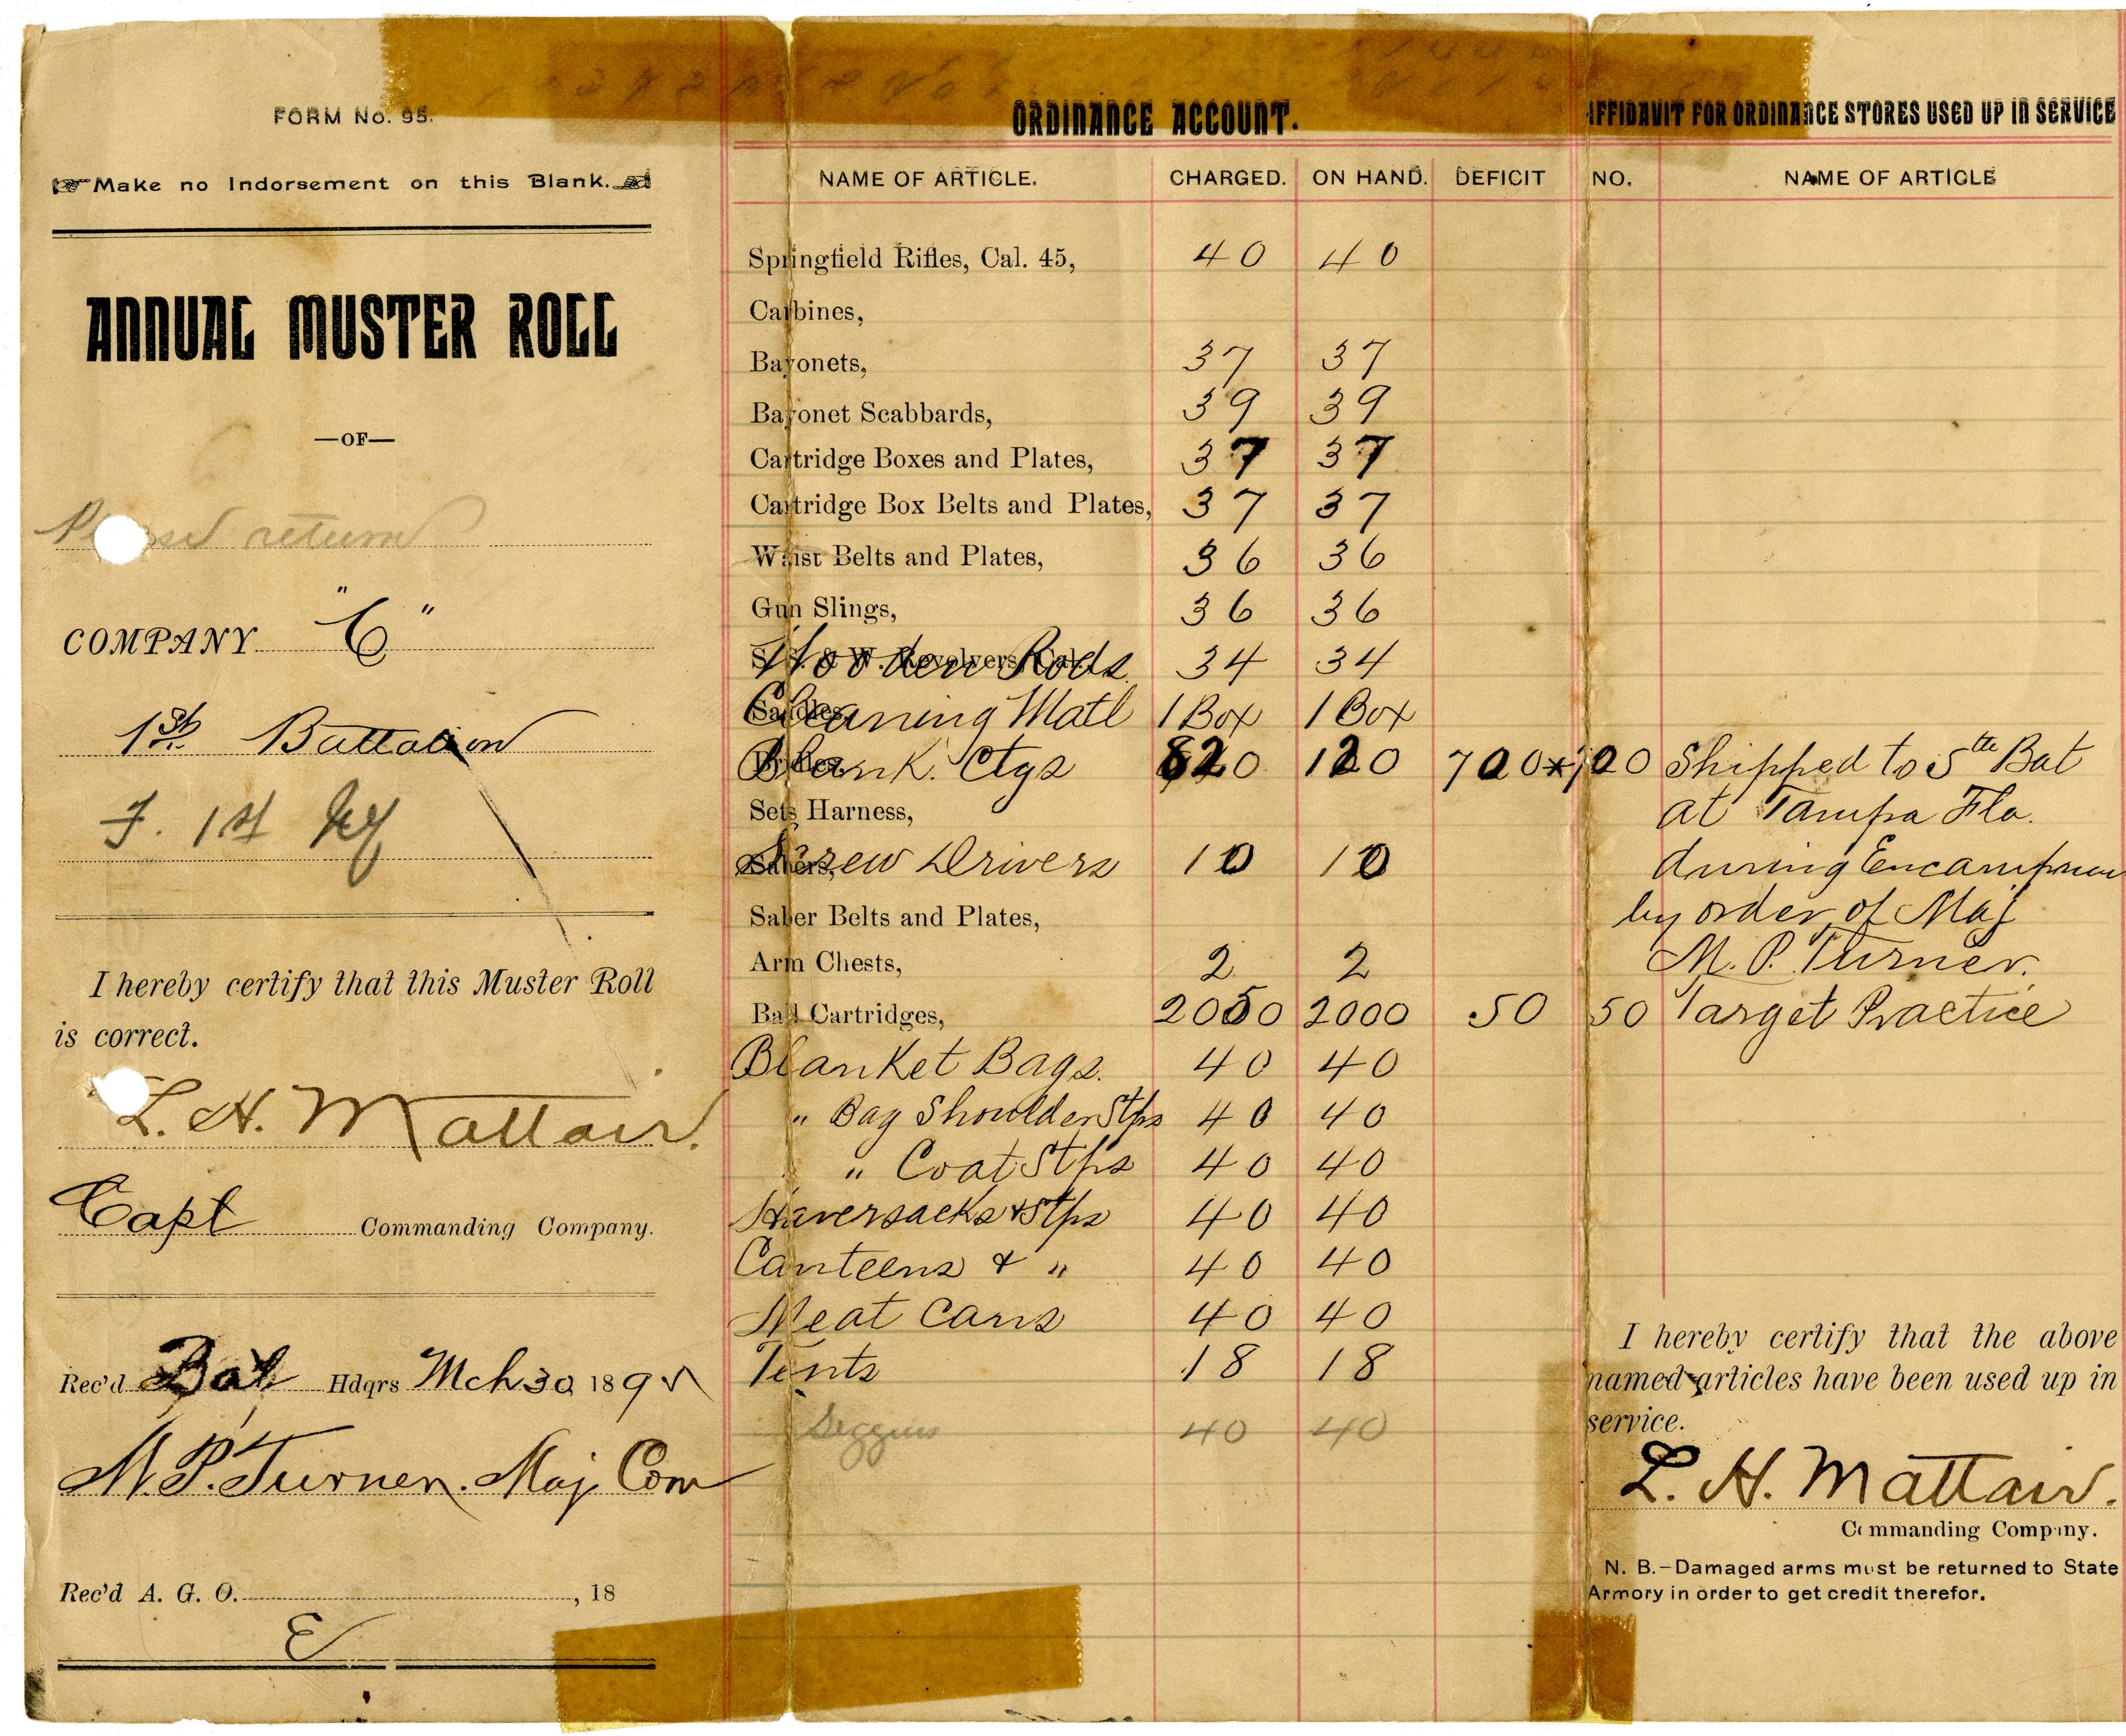 FORM No. 95.
Make no Indorsement on this Blank.
ANNUAL MUSTER ROLL
—OF—
return
COMPANY "C"
1st. Battalion
F. 1st
I hereby certify that this Muster Roll
is correct.
L. H. Mattair.
Capt Commanding Company.
Rec'd Bat Hdqrs Mch 30, 189
M. P. Turner. Maj Com
Rec'd A. G. O. , 18
E
ORDINANCE ACCOUNT.
NAME OF ARTICLE. CHARGED. ON HAND. DEFICIT
Springfield Rifles, Cal. 45, 40 40
Carbines,
Bayonets, 37 37
Bayonet Scabbards, 39 39
Cartridge Boxes and Plates, 37 37
Cartridge Box Belts and Plates, 37 37
Waist Belts and Plates, 36 36
Gun Slings, 36 36
Wooden Rods 34 34
Cleaning Matl 1 Box 1 Box
Blank. Ctgs 820 120 700
Sets Harness,
Screw Drivers 10 10
Saber Belts and Plates,
Arm Chests, 2 2
Ball Cartridges, 2050 2000 50
Blanket Bags. 40 40
" Bag Shoulder Stps 40 40
" Coat Stps 40 40
Haversacks & Stps 40 40
Canteens & " 40 40
Meat Cans 40 40
Tents 18 18
40 40
AFFIDAVIT FOR ORDINANCE STORES USED UP IN SERVICE
NO. NAME OF ARTICLE
700 Shipped to 5th Bat
at Tampa Fla.
during
by order of Maj
M. P. Turner.
50 Target Practice
I hereby certify that the above
named articles have been used up in
service.
L. H. Mattair.
Commanding Company.
N. B.—Damaged arms must be returned to State
Armory in order to get credit therefor.